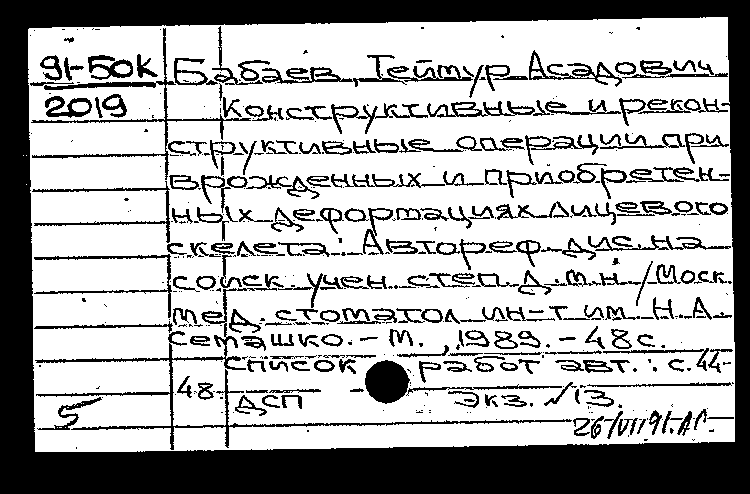 91-50к Бабаев, Теймур Асадович
2019 Конструктивные и рекон-
структивные операции при
врожденных и приобретен-
ных деформациях лицевого
скелета: Автореф. дис. на
соиск. учен. степ. д.м.н. / Моск.
мед. стоматол. ин-т им. Н.А.
Семашко. - М., 1989. - 48 с.
Список работ авт.: с. 44-
48
ДСП - Экз. №13.
5
26/VII 91. АС.